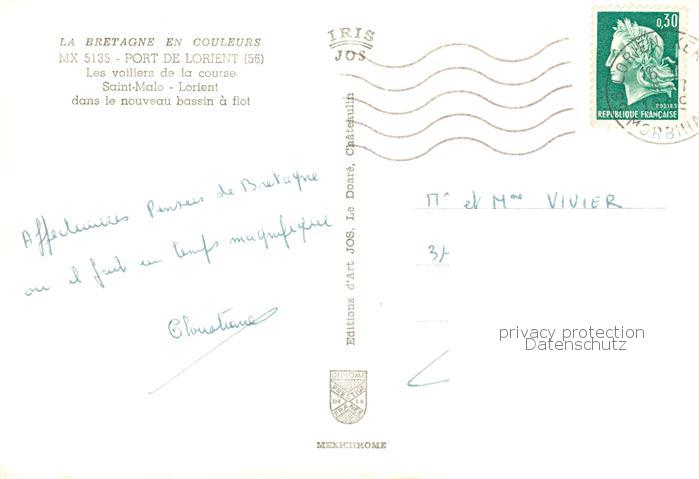 LA BRETAGNE EN COULEURS
MX 5135 - PORT DE LORIENT (56)
Les voiliers de la course
Saint-Malo - Lorient
dans le nouveau bassin à flot
IRIS
JOS
0,30
POSTES
REPUBLIQUE FRANÇAISE
LORIENT
MORBIHAN
Affectueuses Pensées de Bretagne
ou il fait un temps magnifique
Christiane
Editions d'Art JOS, Le Doaré, Châteaulin
Mr et Mme VIVIER
privacy protection
Datenschutz
DIPLOME
PRESTIGE
DE LA
FRANCE
MEXICHROME